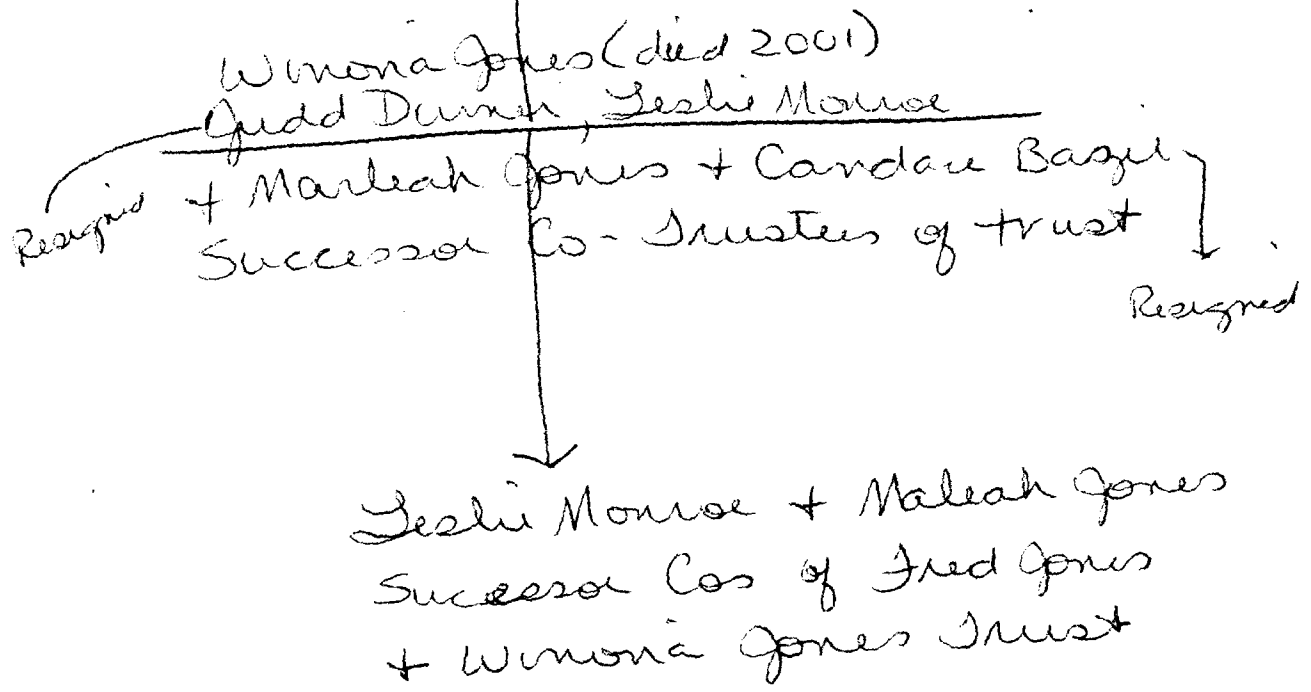 Winona Jones (died 2001)
Judd Durner, Leslie Monroe
+ Marleah Jones + Candace Bazil
Resigned
Successor Co-Trustees of trust
Resigned
Leslie Monroe + Maleah Jones
Successor Cos of Fred Jones
+ Winona Jones Trust